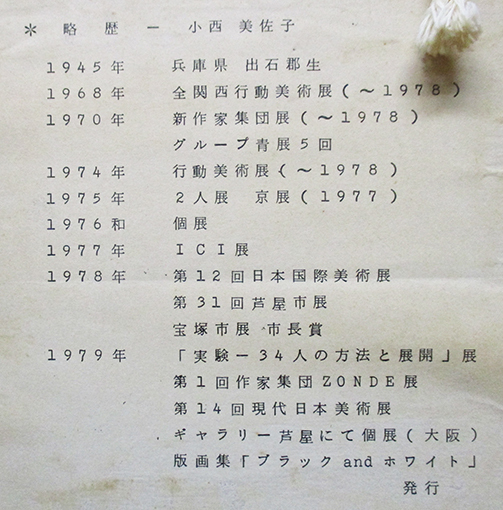 ＊ 略 歴 － 小西 美佐子
1945年 兵庫県 出石郡生
1968年 全関西行動美術展(～1978)
1970年 新作家集団展(～1978)
グループ青展5回
1974年 行動美術展(～1978)
1975年 2人展 京展(1977)
1976和 個展
1977年 ICI展
1978年 第12回日本国際美術展
第31回芦屋市展
宝塚市展 市長賞
1979年 「実験－34人の方法と展開」展
第1回作家集団ZONDE展
第14回現代日本美術展
ギャラリー芦屋にて個展(大阪)
版画集「ブラックandホワイト」
発行